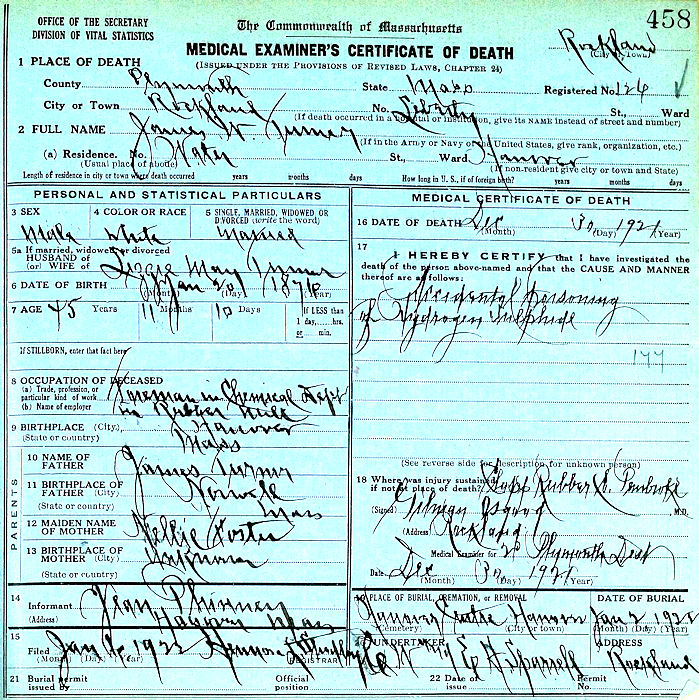 458
OFFICE OF THE SECRETARY
DIVISION OF VITAL STATISTICS
The Commonwealth of Massachusetts
MEDICAL EXAMINER'S CERTIFICATE OF DEATH
(ISSUED UNDER THE PROVISIONS OF REVISED LAWS, CHAPTER 24)
Rockland
(City or Town)
1 PLACE OF DEATH
County Plymouth State Mass Registered No. 126
City or Town Rockland No. Liberty St., Ward
(If death occurred in a hospital or institution, give its NAME instead of street and number)
2 FULL NAME James W. Turner
(If in the Army or Navy of the United States, give rank, organization, etc.)
(a) Residence. No. Water St., Ward Hanover
(Usual place of abode) (If non-resident give city or town and State)
Length of residence in city or town where death occurred years months days How long in U. S., if of foreign birth? years months days
PERSONAL AND STATISTICAL PARTICULARS
3 SEX 4 COLOR OR RACE 5 SINGLE, MARRIED, WIDOWED OR DIVORCED (write the word)
Male White Married
5a If married, widowed or divorced
HUSBAND of
(or) WIFE of Lizzie May Turner
6 DATE OF BIRTH Jan 20 1876
(Month) (Day) (Year)
7 AGE 45 Years 11 Months 10 Days If LESS than 1 day,......hrs. or......min.
If STILLBORN, enter that fact here
8 OCCUPATION OF DECEASED
(a) Trade, profession, or particular kind of work Foreman in Chemical Dept
(b) Name of employer in Rubber Mill
9 BIRTHPLACE (City) Hanover
(State or country) Mass
PARENTS
10 NAME OF FATHER James Turner
11 BIRTHPLACE OF FATHER (City) Norwell
(State or country) Mass
12 MAIDEN NAME OF MOTHER Nellie Foster
13 BIRTHPLACE OF MOTHER (City) Unknown
(State or country)
14 Informant Jean Phinney
(Address) Mass
15 Filed Jan 1922
(Month) (Day) (Year) REGISTRAR
MEDICAL CERTIFICATE OF DEATH
16 DATE OF DEATH Dec 30 1921
(Month) (Day) (Year)
17 I HEREBY CERTIFY that I have investigated the death of the person above-named and that the CAUSE AND MANNER thereof are as follows:
Accidental Poisoning
of Hydrogen Sulphide
177
(See reverse side for description for unknown person)
18 Where was injury sustained if not at place of death? Rubber Co. Pembroke
(Signed) Gilman Osgood M.D.
(Address) Rockland
Medical Examiner for 2d Plymouth Dist
Date Dec 30 1921
(Month) (Day) (Year)
19 PLACE OF BURIAL, CREMATION, OR REMOVAL DATE OF BURIAL
Hanover Centre Hanover Jan 2 1922
(Cemetery) (City or town) (Month) (Day) (Year)
20 UNDERTAKER ADDRESS
E. A. Sparrell Rockland
21 Burial permit issued by Official position 22 Date of issue Permit No.